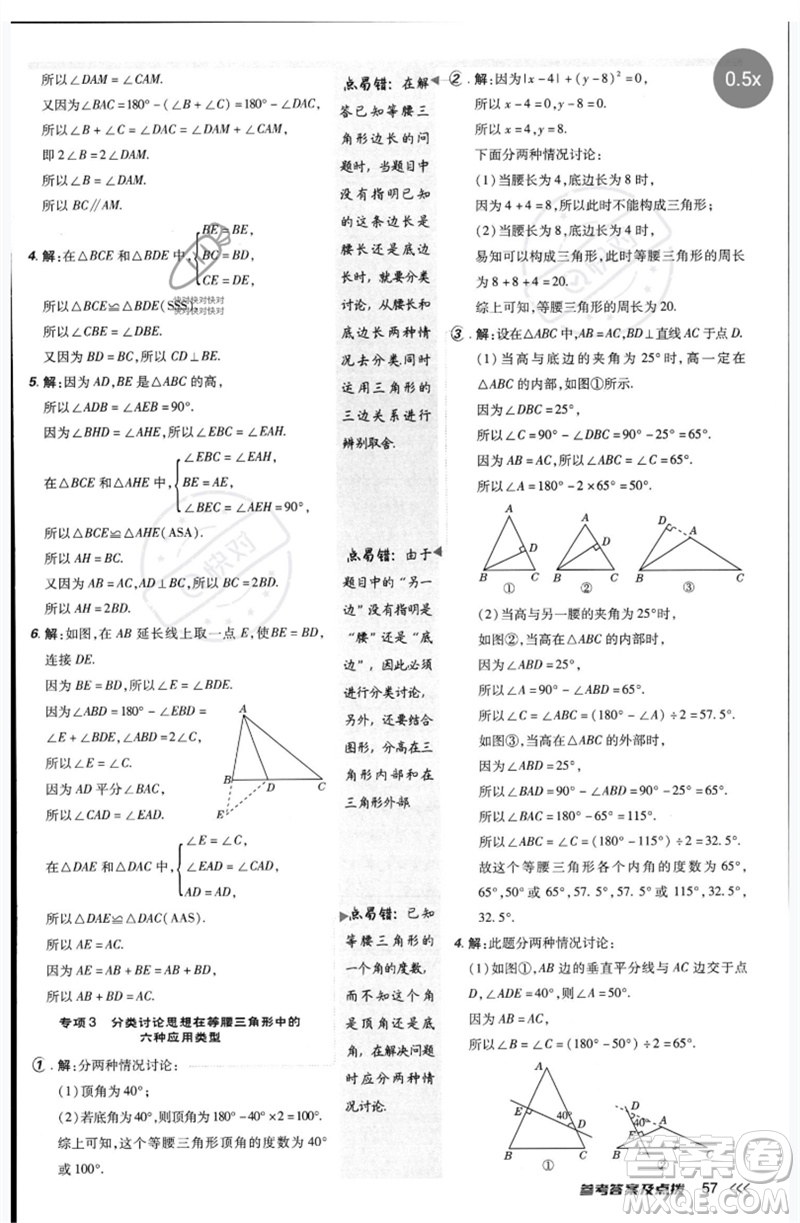 所以∠DAM = ∠CAM.
又因为∠BAC=180° - (∠B + ∠C)=180° - (∠DAM + ∠CAM),
所以∠B + ∠C = ∠DAM + ∠CAM,
即 2∠B = 2∠DAM.
所以∠B = ∠DAM.
所以 BC∥AM.
4. 解:在△BCE 和△BDE 中,
BE = BE,
BC = BD,
CE = DE,
所以△BCE≌△BDE(SSS).
所以∠CBE = ∠DBE.
又因为 BC = BD,所以 BE⊥CD.
5. 解:因为 AD,BE 是△ABC 的高,
所以∠ADB = ∠AEB = 90°.
因为∠BHD = ∠AHE,所以∠EBC = ∠EAH.
在△BCE 和△AHE 中,
∠EBC = ∠EAH,
BE = AE,
∠BEC = ∠AEH = 90°,
所以△BCE≌△AHE(ASA).
所以 AH = BC.
又因为 AB = AC,AD⊥BC,所以 BC = 2BD.
所以 AH = 2BD.
6. 解:如图,在 AB 延长线上取一点 E,使BE = BD,
连接 DE.
因为 BE = BD,所以∠E = ∠BDE.
因为∠ABD = 180° - ∠DBE =
∠E + ∠BDE,∠ABD = 2∠C,
所以∠E = ∠C.
因为 AD 平分∠BAC,
所以∠CAD = ∠EAD.
A
B
D
C
E
在△DAE 和△DAC 中,
∠E = ∠C,
∠EAD = ∠CAD,
AD = AD,
所以△DAE≌△DAC(AAS).
所以 AE = AC.
因为 AE = AB + BE,
所以 AC = AB + BE,即 AC = AB + BD.
专项 3 分类讨论思想在等腰三角形中的
六种应用类型
1. 解:分两种情况讨论:
(1)顶角为 40°;
(2)若底角为40°,则顶角为180° - 40° × 2 = 100°.
综上可知,等腰三角形顶角的度数为 40°
或 100°.
点易错:在解
答已知等腰三
角形边长的问
题时,当题目中
没有指明已知
的这条边长是
腰长还是底边
长时,就要分类
讨论,以腰长和
底边长两种情
况去分类.同时
运用三角形的
三边关系进行
辨别取舍.
点易错:由于
题目中的“另一
边”没有指明是
“腰”还是“底
边”,因此必须
进行分类讨论,
另外,还要结合
图形,分高在三
角形内部和在
三角形外部
点易错:已知
等腰三角形的
一个角的度数,
而不知这个角
是顶角还是底
角,在解决问题
时应分两种情
况讨论.
2. 解:因为|x - 4| + (y - 8)² = 0,
所以 x - 4 = 0,y - 8 = 0.
所以 x = 4,y = 8.
下面分两种情况讨论:
(1)当腰长为 4,底边长为 8 时,
因为 4 + 4 = 8,所以此时不能构成三角形;
(2)当腰长为 8,底边长为 4 时,
易知可以构成三角形,此时等腰三角形的周长
为 8 + 8 + 4 = 20.
综上可知,等腰三角形的周长为 20.
3. 解:设在△ABC 中,AB = AC,BD⊥直线 AC 于点 D.
(1)当高与底边的夹角为 25°时,高一定在
△ABC 的内部,如图①所示.
因为∠DBC = 25°,
所以∠C = 90° - ∠DBC = 90° - 25° = 65°.
因为 AB = AC,所以∠ABC = ∠C = 65°.
所以∠A = 180° - 2 × 65° = 50°.
A
D
B
C
①
A
D
B
C
②
D
A
B
C
③
(2)当高与另一腰的夹角为 25°时,
如图②,当高在△ABC 的内部时,
因为∠ABD = 25°,
所以∠A = 90° - ∠ABD = 65°.
所以∠C = ∠ABC = (180° - ∠A) ÷ 2 = 57. 5°.
如图③,当高在△ABC 的外部时,
因为∠ABD = 25°,
所以∠BAD = 90° - ∠ABD = 65°.
所以∠BAC = 180° - 65° = 115°.
所以∠ABC = ∠C = (180° - 115°) ÷ 2 = 32. 5°.
故这个等腰三角形各个内角的度数为 65°,
65°,50° 或 65°,57. 5°,57. 5° 或 115°,32. 5°,
32. 5°.
4. 解:此题分两种情况讨论:
(1)如图①,AB 边的垂直平分线与 AC 边交于点
D,∠ADE = 40°,则∠A = 50°,
因为 AB = AC,
所以∠B = (180° - 50°) ÷ 2 = 65°.
A
E
40°
D
B
C
①
D
40°
E
A
B
C
②
参考答案及点拨
57
0.5x
快对快对快对
快对快对快对
快对
快对
答案圈